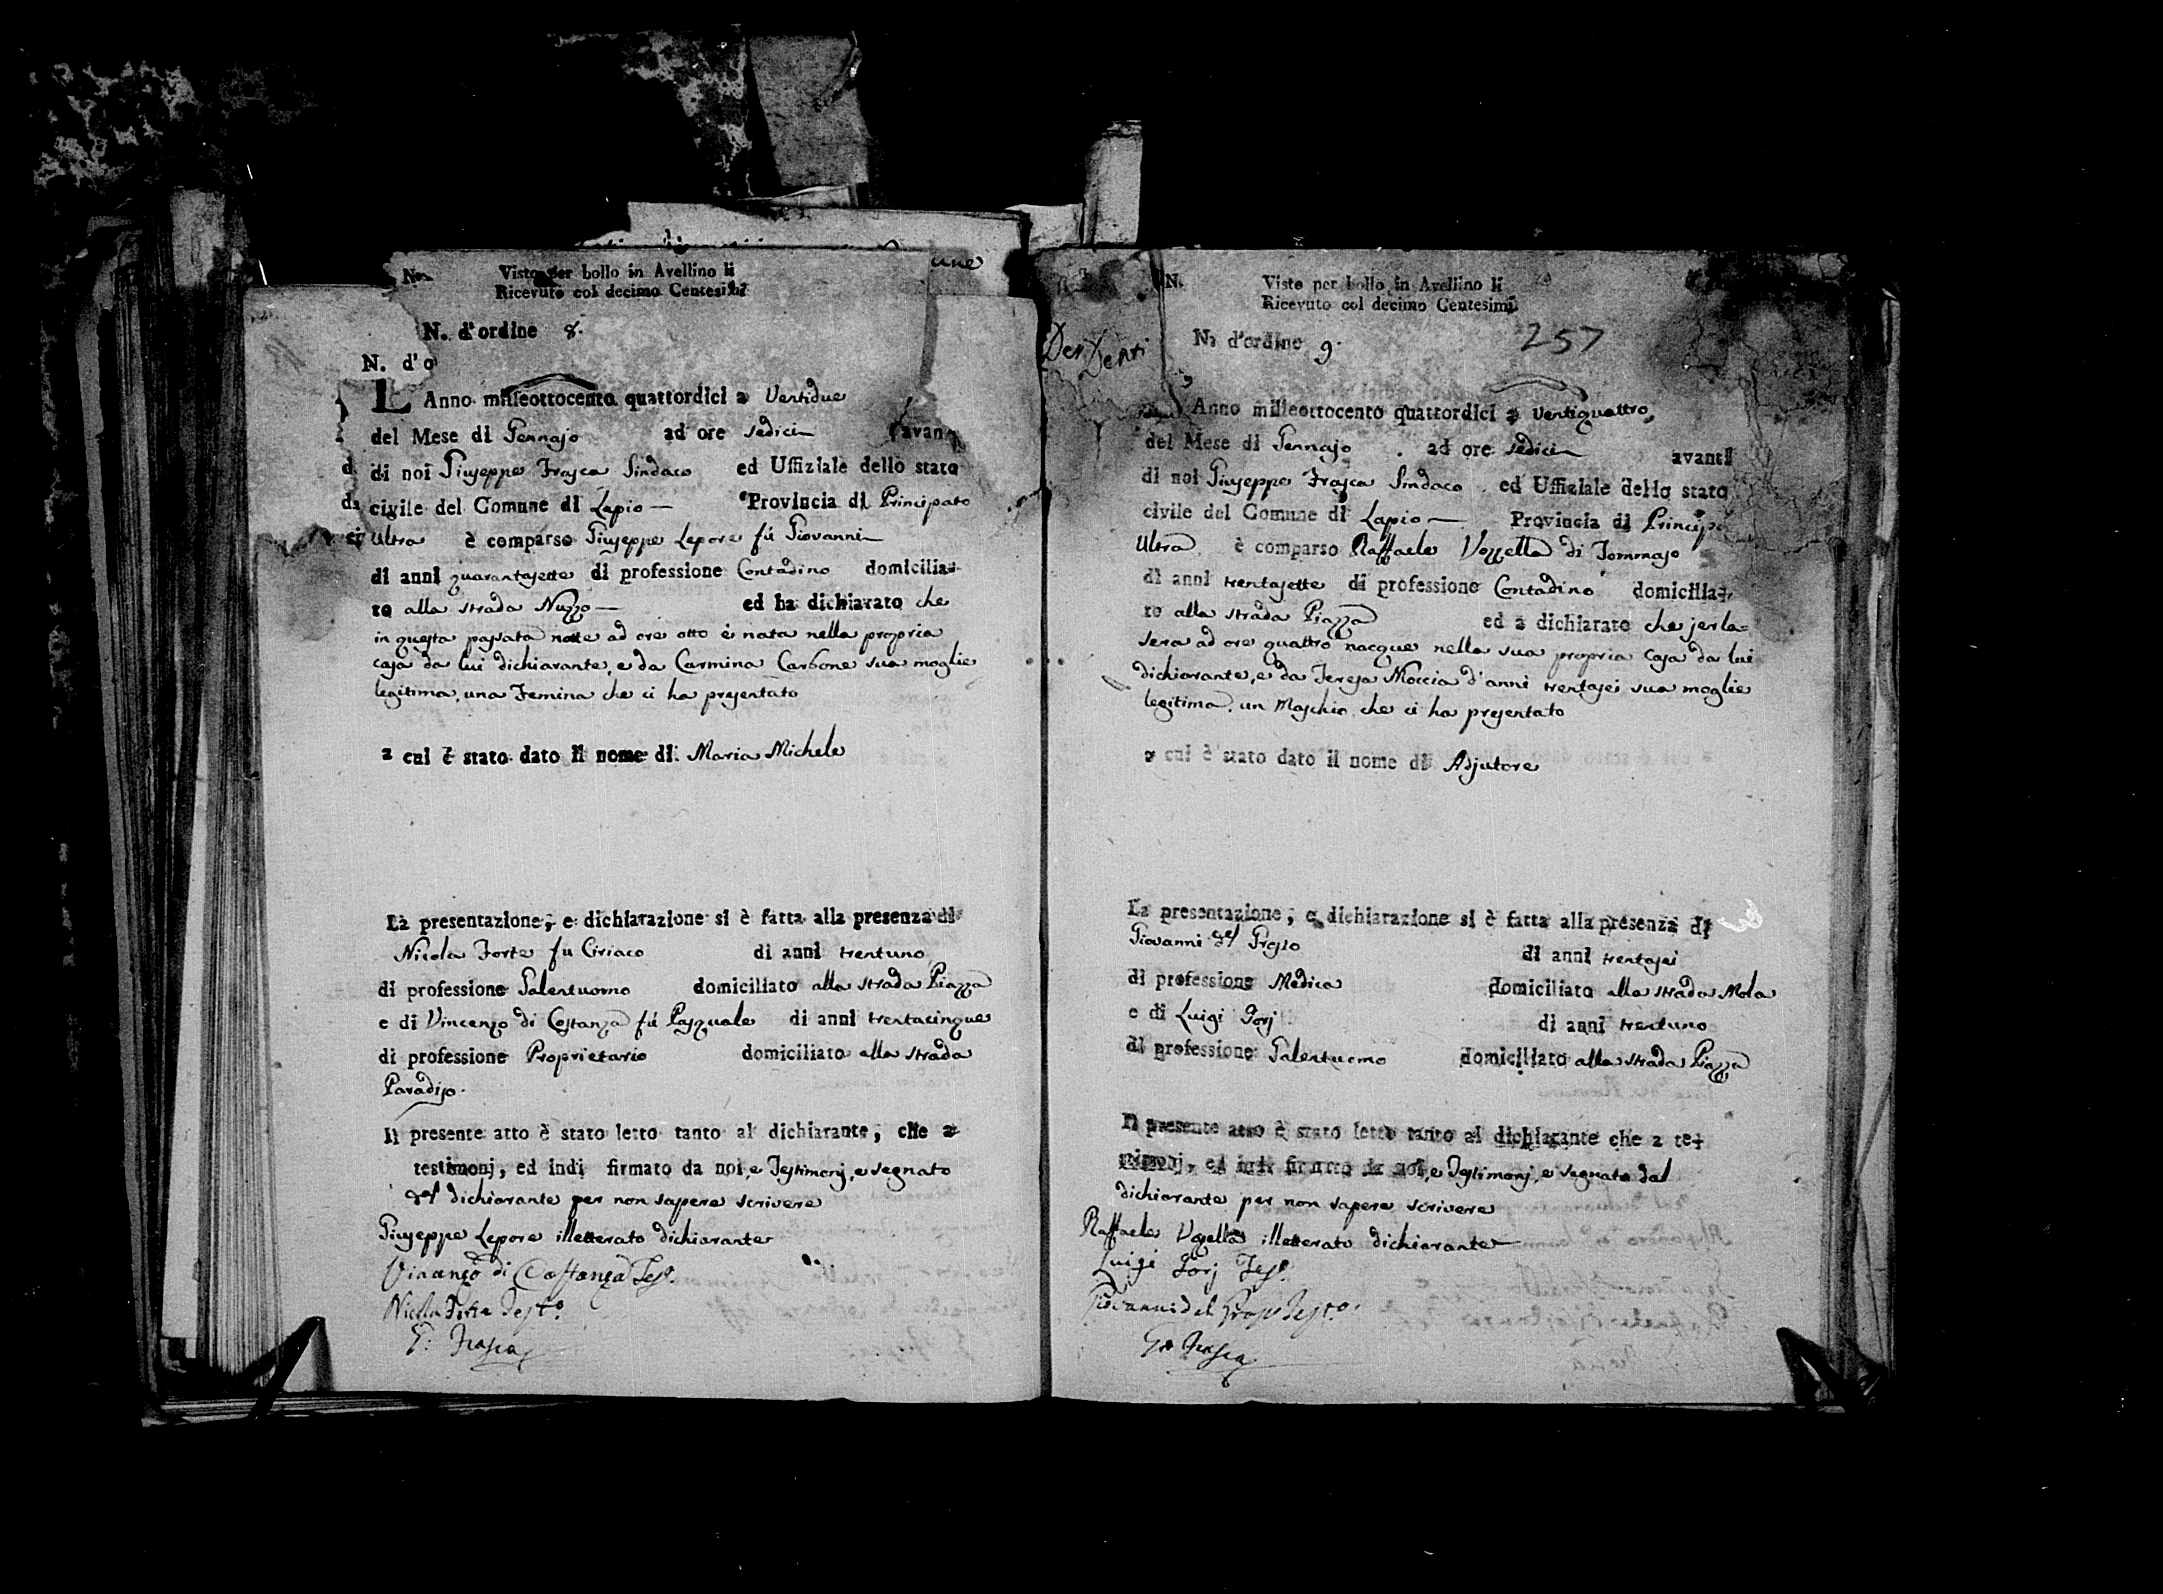 No.
Visto per bollo in Avellino li
Ricevuto col decimo Centesimi
N. d'ordine 8.
N. d'o
L'Anno milleottocento quattordici a Ventidue
del Mese di Gennajo ad ore sedici avan
di noi Giuseppe Frasca Sindaco ed Uffiziale dello stato
civile del Comune di Lapio Provincia di Principato
Ultra è comparso Giuseppe Lepore fù Giovanni
di anni quarantasette di professione Contadino domicilia-
to alla strada Nuzzo ed ha dichiarato che
in questa passata notte ad ore otto è nata nella propria
casa da lui dichiarante, e da Carmina Carbone sua moglie
legitima, una Femina che ci ha presentato
a cui è stato dato il nome di Maria Michele
La presentazione, e dichiarazione si è fatta alla presenza di
Nicola Forte fu Ciriaco di anni trentuno
di professione Galentuomo domiciliato alla strada Piazza
e di Vincenzo di Costanza fù Pasquale di anni trentacinque
di professione Proprietario domiciliato alla strada
Paradiso.
Il presente atto è stato letto tanto al dichiarante, che a
testimonj, ed indi firmato da noi, e Testimonj, e segnato
del dichiarante per non sapere scrivere
Giuseppe Lepore illetterato dichiarante
Vincenzo di Costanza Tes.o
Nicola Forte Test.o
G. Frasca
N.
Visto per bollo in Avellino li
Ricevuto col decimo Centesimi
N. d'ordine 9.
257
Anno milleottocento quattordici a Ventiquattro
del Mese di Gennajo ad ore sedici avanti
di noi Giuseppe Frasca Sindaco ed Uffiziale dello stato
civile del Comune di Lapio Provincia di Princip
Ultra è comparso Raffaele Vozzella di Tommaso
di anni trentasette di professione Contadino domicilia-
to alla strada Piazza ed a dichiarato che jerla=
sera ad ore quattro nacque nella sua propria casa da lui
dichiarante, e da Teresa Moccia d'anni trentasei sua moglie
legitima, un Maschio che ci ha presentato
a cui è stato dato il nome di Adjutore
La presentazione, e dichiarazione si è fatta alla presenza di
Giovanni del Grosso di anni trentasei
di professione Medica domiciliato alla strada Mola
e di Luigi Forj di anni trentuno
di professione Galentuomo domiciliato alla strada Piazza
Il presente atto è stato letto tanto al dichiarante che a te-
stimonj, ed indi firmato da noi, e Testimonj, e segnato dal
dichiarante per non sapere scrivere
Raffaele Vozella illetterato dichiarante
Luigi Forj Tes.o
Giovanni del Grosso Test.o
G. Frasca